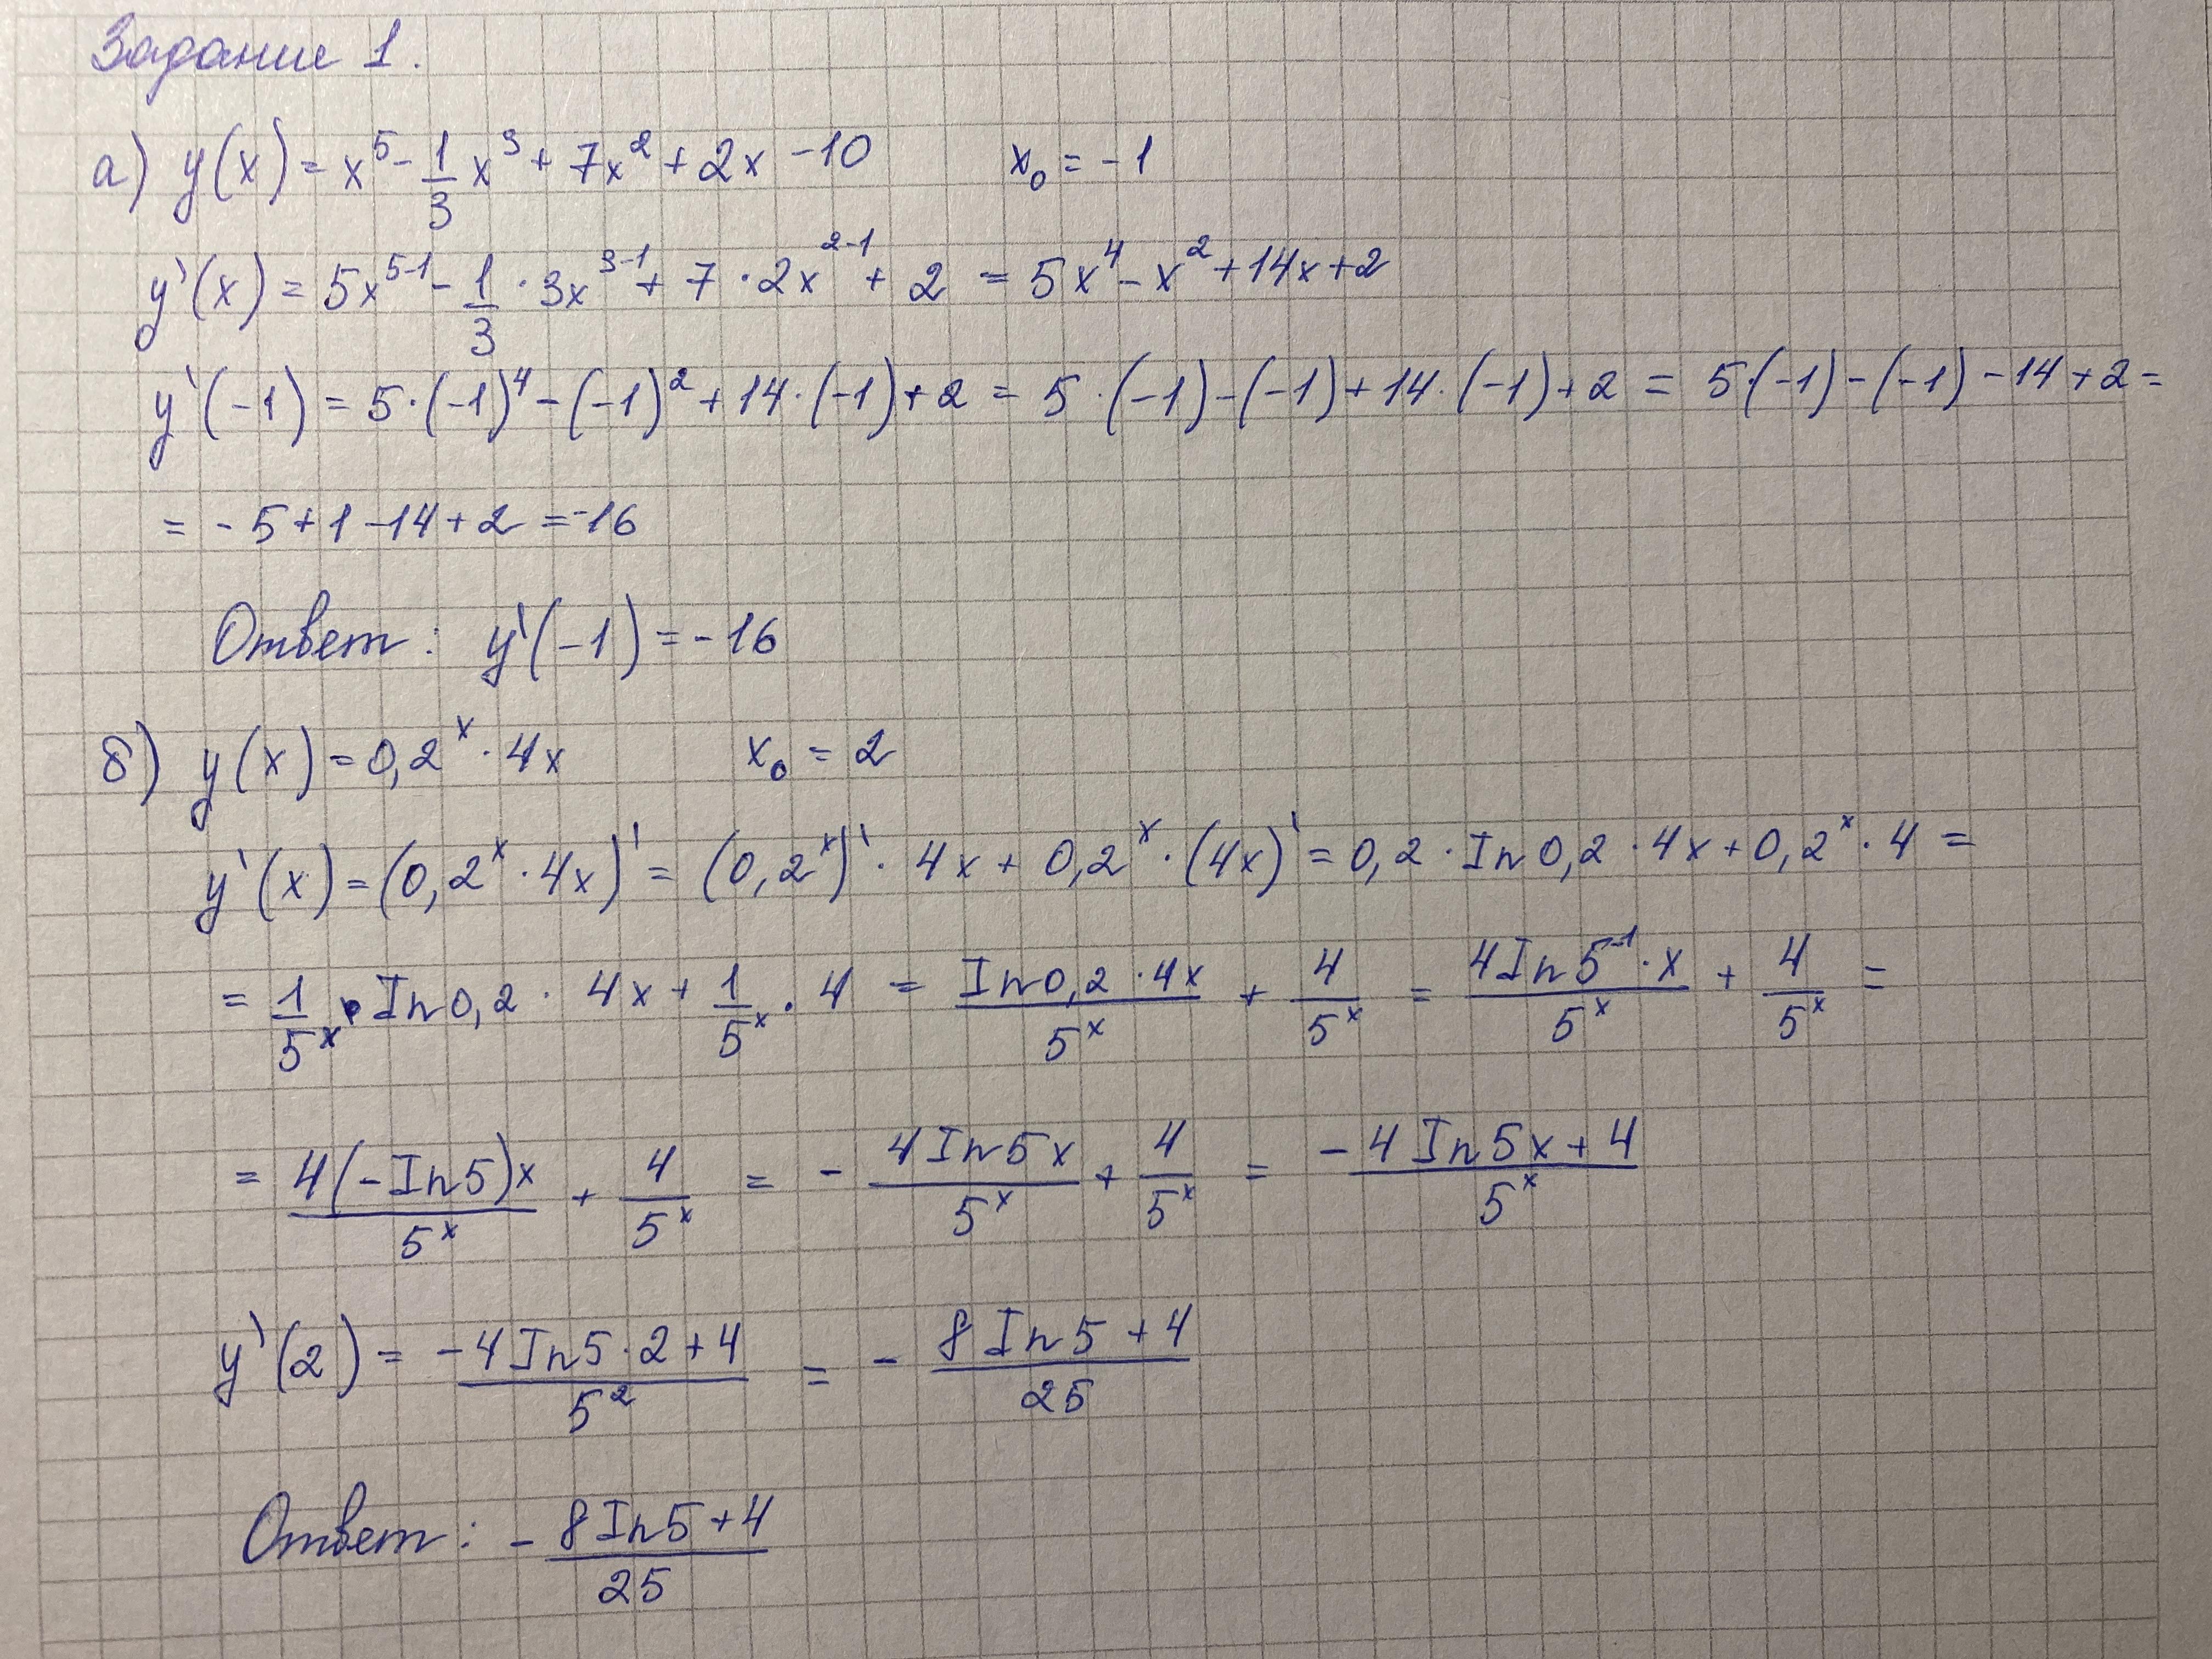 Задание 1.
а) y(x) = x⁵ - 1/3 x³ + 7x² + 2x - 10   x₀ = -1
y'(x) = 5x⁵⁻¹ - 1/3 · 3x³⁻¹ + 7 · 2x²⁻¹ + 2 = 5x⁴ - x² + 14x + 2
y'(-1) = 5·(-1)⁴ - (-1)² + 14·(-1) + 2 = 5·(-1) - (-1) + 14·(-1) + 2 = 5·(-1) - (-1) - 14 + 2 =
= -5 + 1 - 14 + 2 = -16
Ответ: y'(-1) = -16
б) y(x) = 0,2ˣ · 4x   x₀ = 2
y'(x) = (0,2ˣ · 4x)' = (0,2ˣ)' · 4x + 0,2ˣ · (4x)' = 0,2 · ln0,2 · 4x + 0,2ˣ · 4 =
= 1/5ˣ · ln0,2 · 4x + 1/5ˣ · 4 = (ln0,2 · 4x)/5ˣ + 4/5ˣ = (4ln5⁻¹ · x)/5ˣ + 4/5ˣ =
= (4(-ln5)x)/5ˣ + 4/5ˣ = - (4ln5x)/5ˣ + 4/5ˣ = (-4ln5x + 4)/5ˣ
y'(2) = (-4ln5·2 + 4)/5² = - (8ln5 + 4)/25
Ответ: - (8ln5 + 4)/25